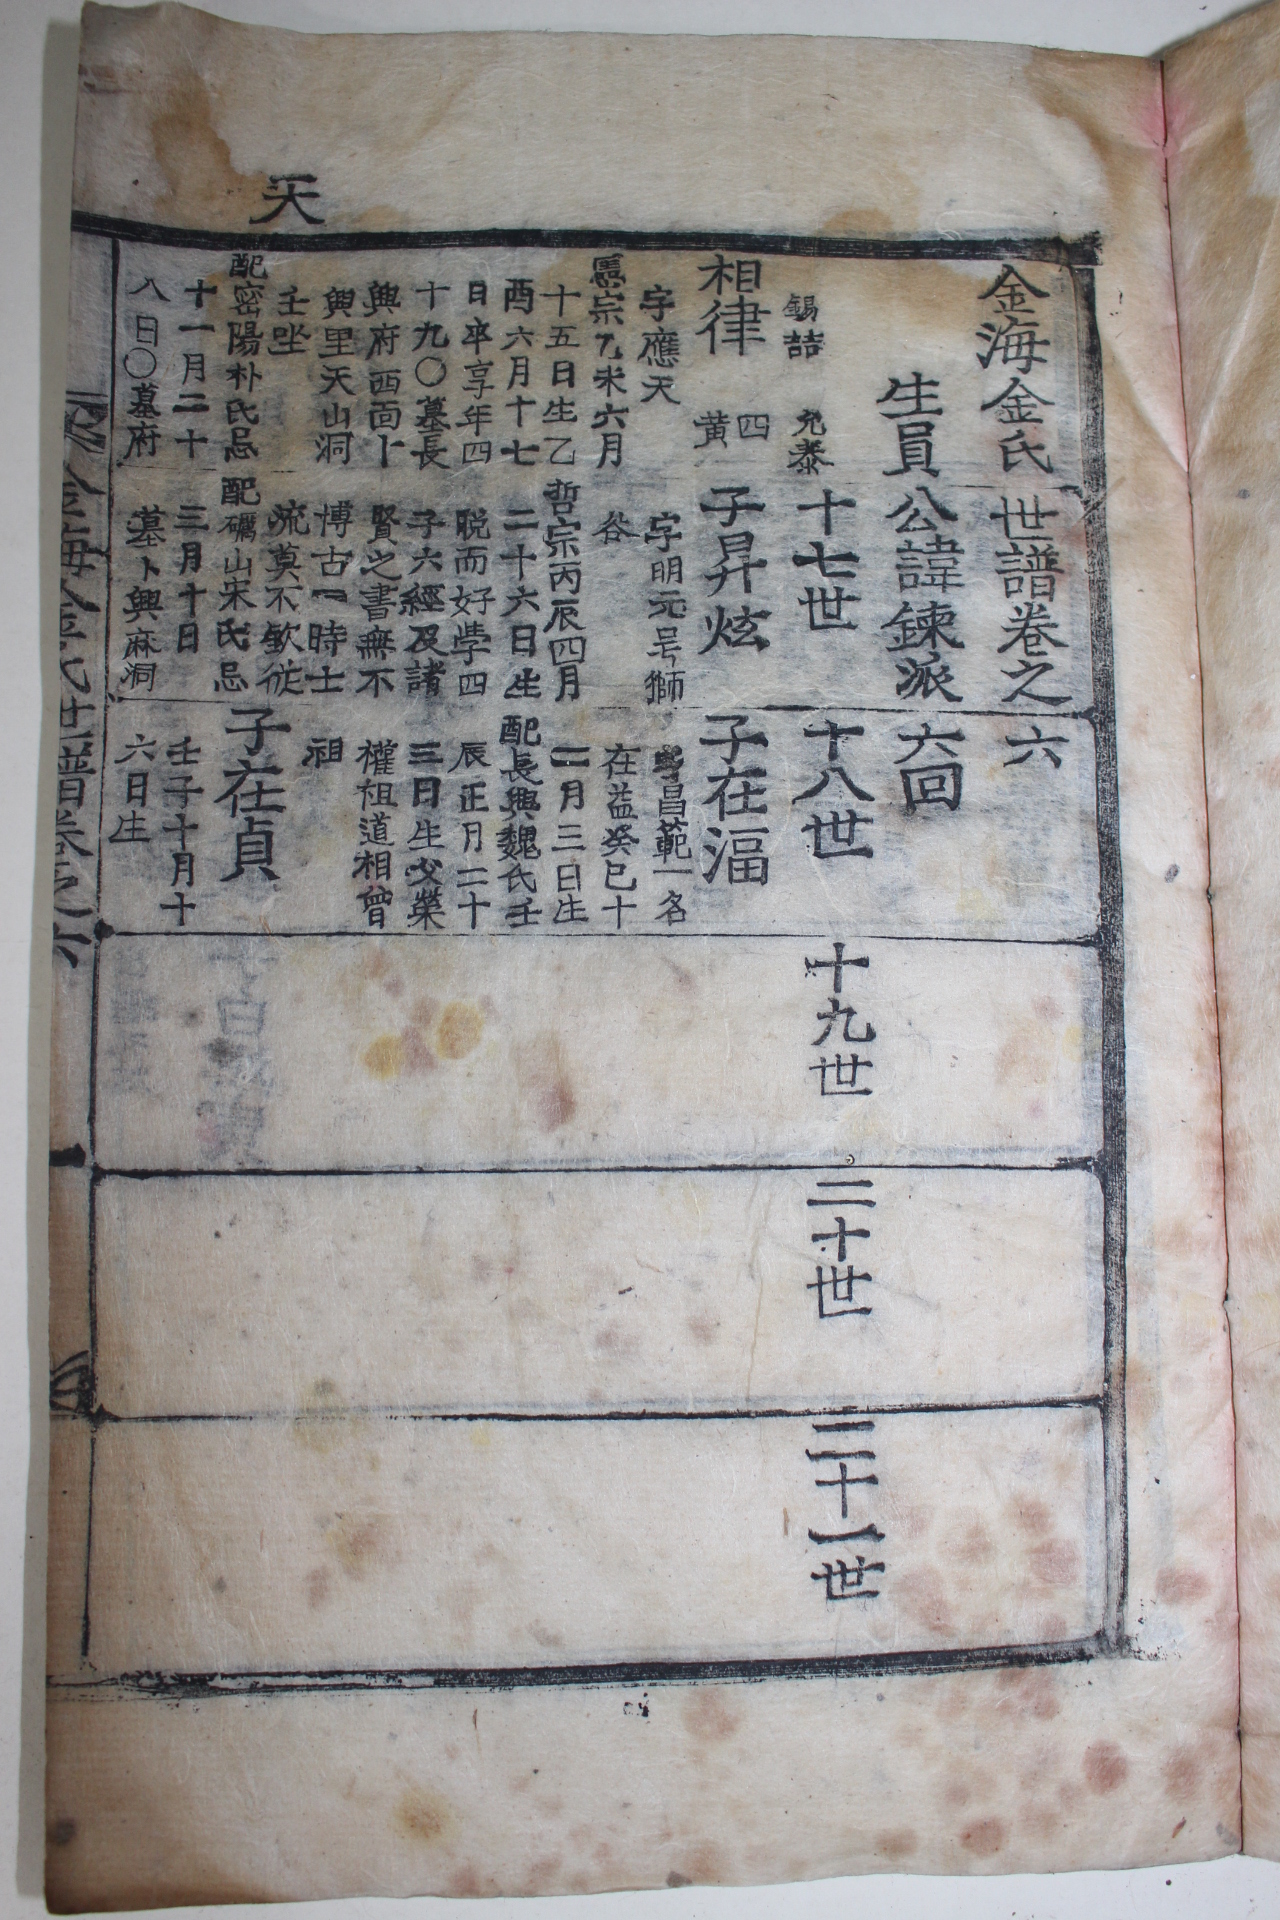 天
金海金氏世譜卷之六
生員公諱鍊派 六回
錫喆 允泰
十七世
十八世
十九世
二十世
二十一世
相律
四
黃
字應天
憲宗乙未六月
十五日生乙
酉六月十七
日卒享年四
十九〇墓長
興府西面卜
興里天山洞
壬坐
配密陽朴氏忌
十一月二十
八日〇墓府
子昇炫
字明元号獅
谷
哲宗丙辰四月
二十六日生
脫而好学四
子六經及諸
賢之書無不
博古一時士
流莫不欽従
配礪山宋氏忌
三月十日
墓卜興麻洞
子在湢
字昌範一名
在益癸巳十
二月三日生
配長興魏氏壬
辰正月二十
三日生父榮
權祖道相曾
祖
子在貞
壬子十月十
六日生
金海金氏世譜卷之六
一